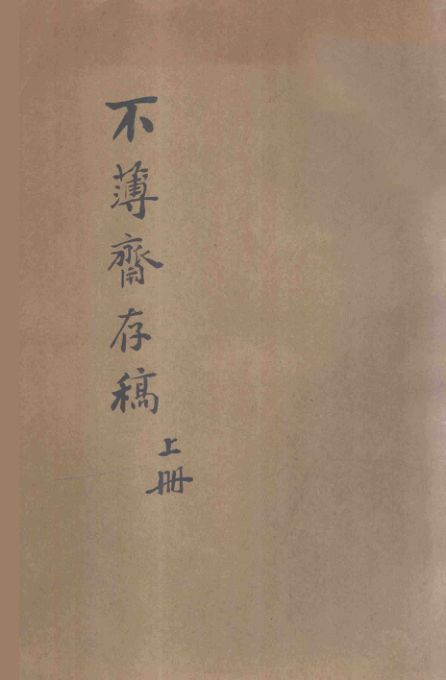 不薄齋存稿
上冊